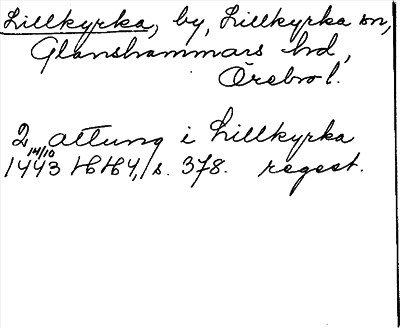 Lillkyrka, by, Lillkyrka sn,
Glanshammars hd,
Örebro l.
2 attung i Lillkyrka
14/10
1443 HH 4, s. 378. regest.